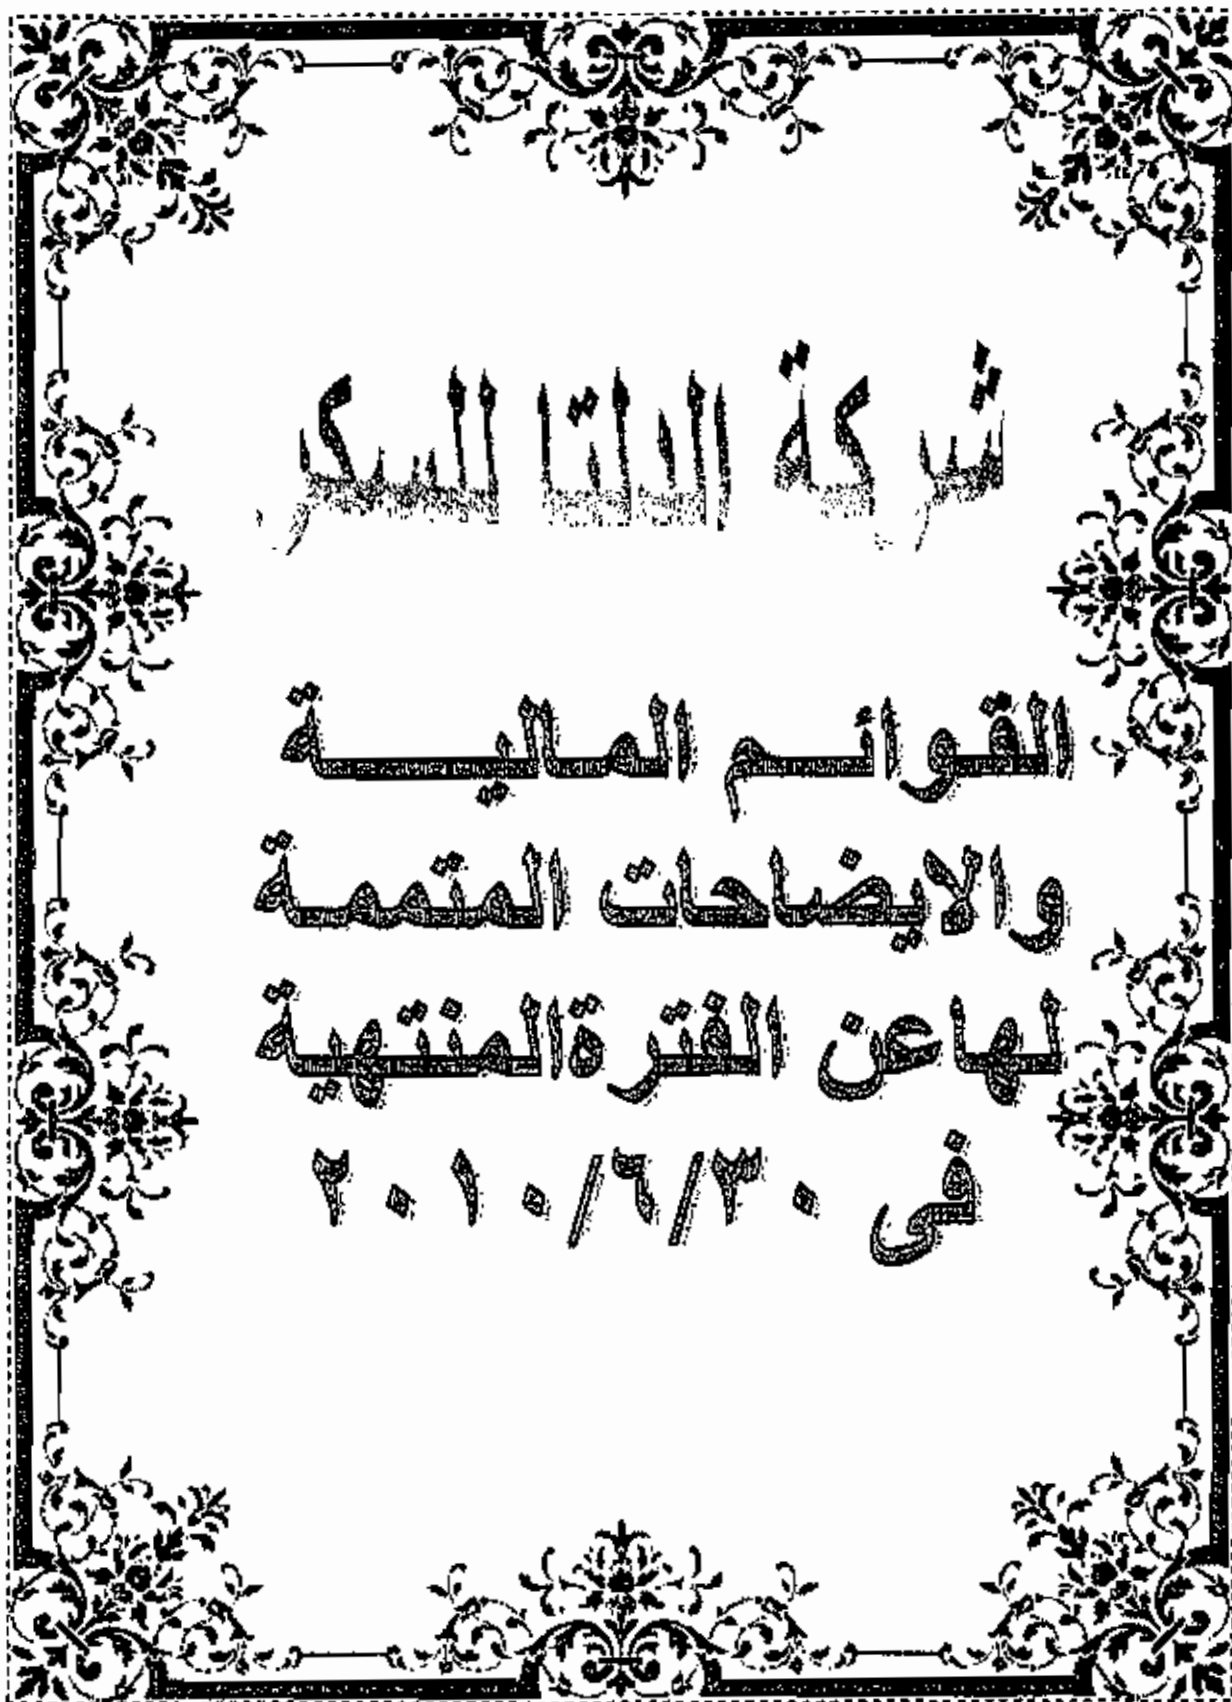 شركة الدلتا للسكر
القوائم المالية
والايضاحات المتممة
لهاعن الفترةالمنتهية
فى ٢٠١٠/٦/٣٠